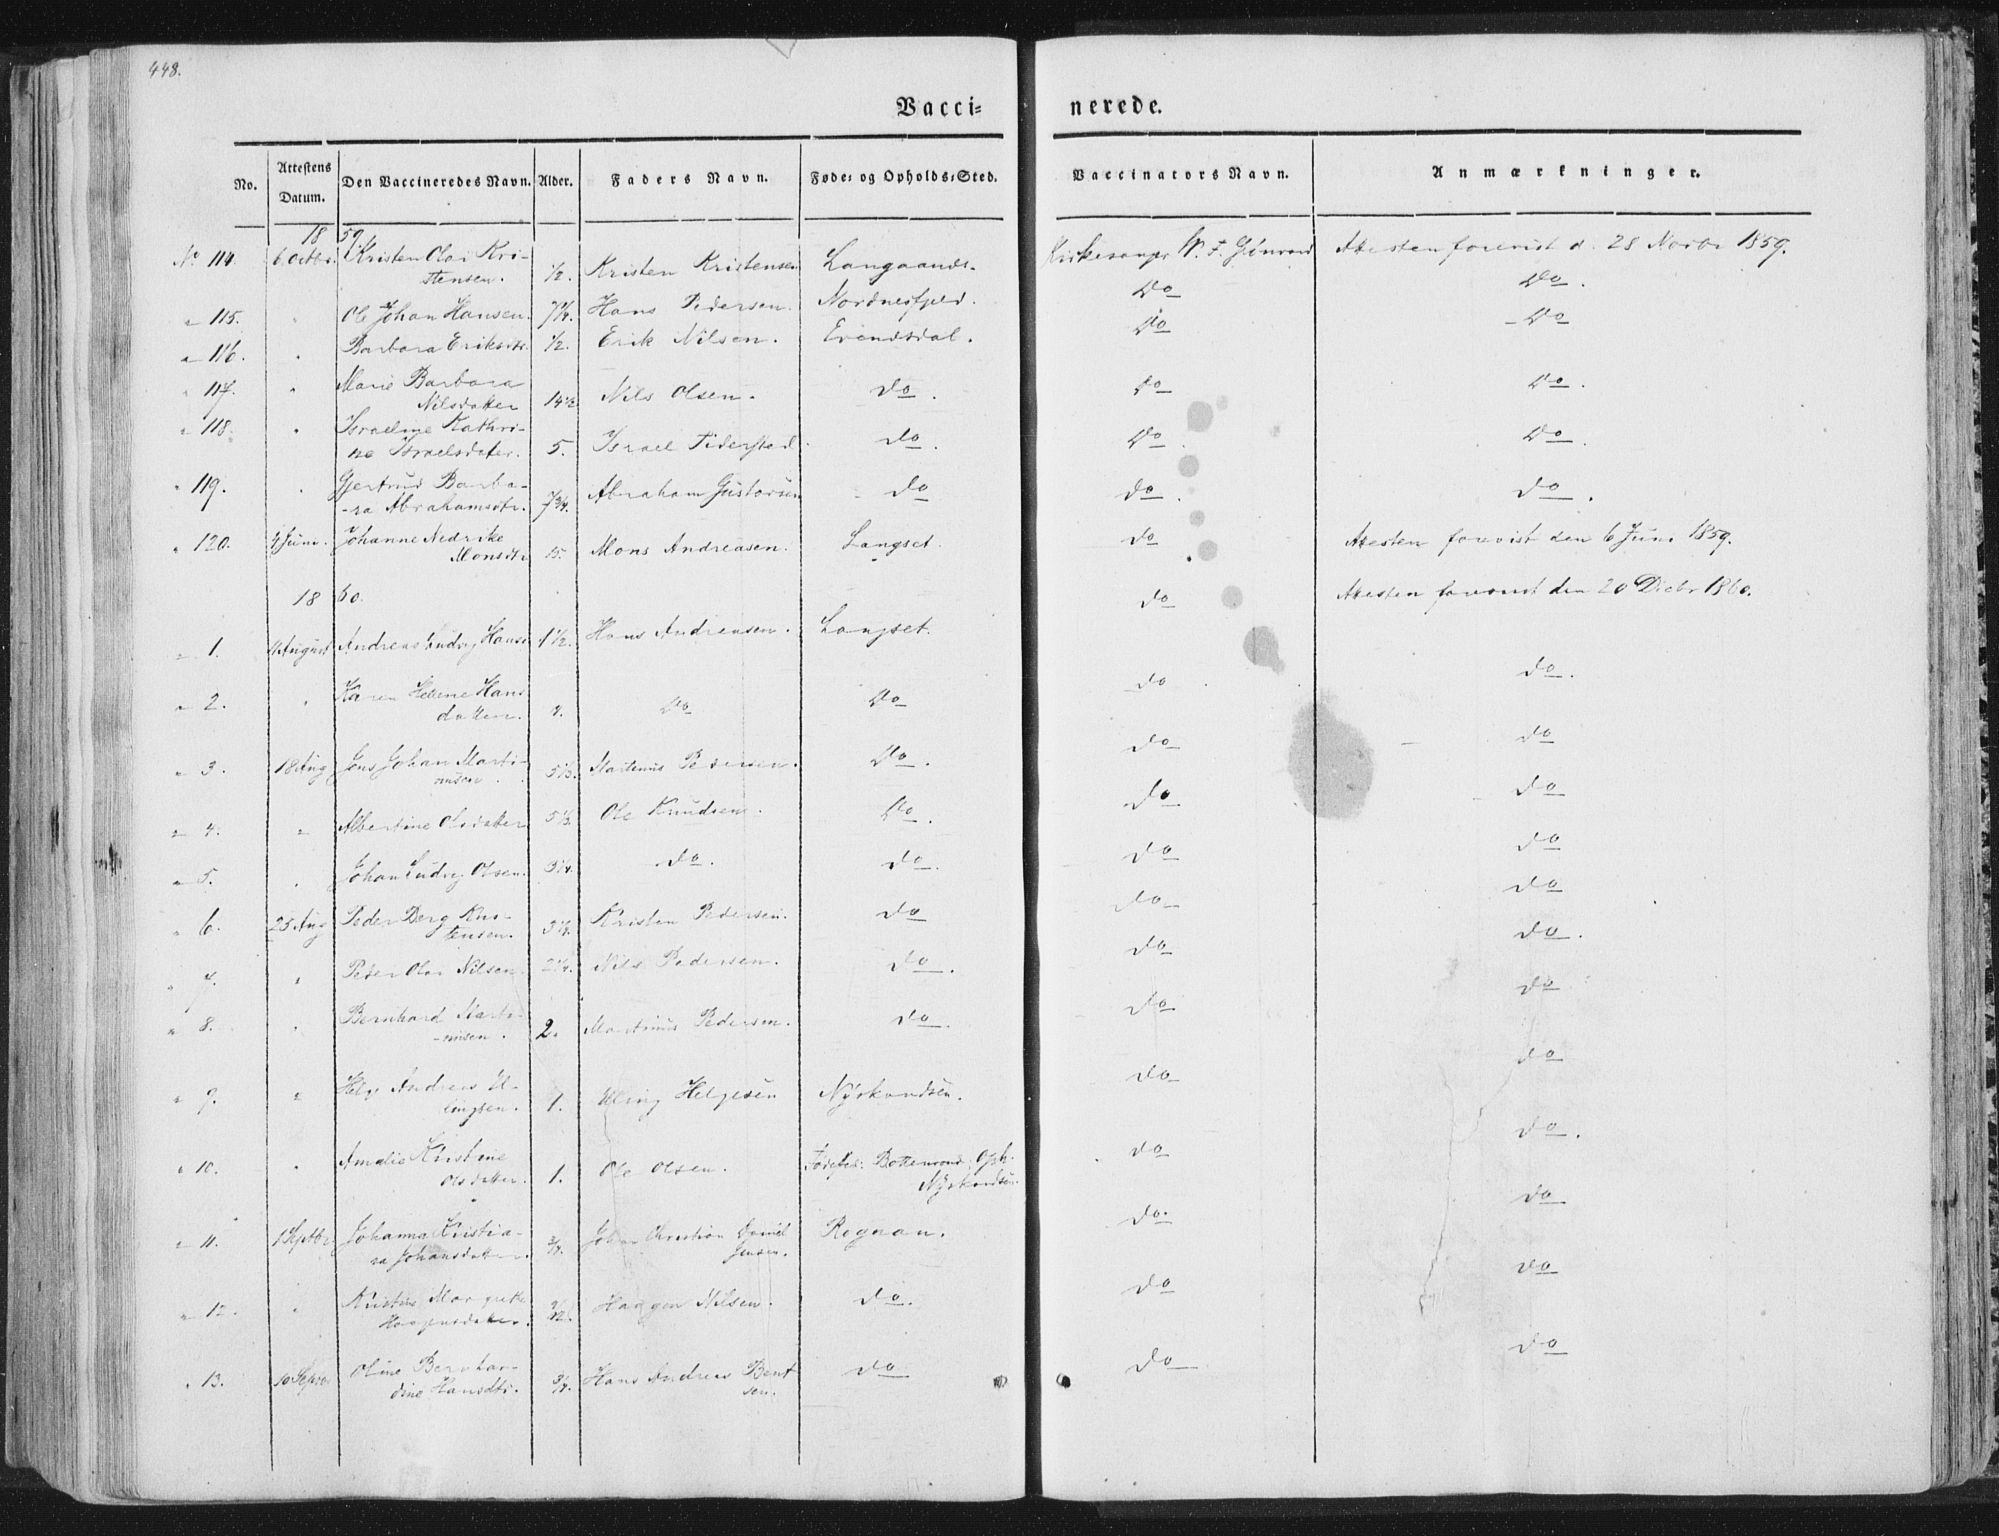 448.
Vacci= nerede.
No. Attestens Datum. Den Vaccineredes Navn. Alder. Faders Navn. Føde= og Opholds=Sted. Vaccinators Navn. Anmærkninger.
1859
No 114. 6 Octbr. Kristen Olai Kri- ½. Kristen Kristensen Langaands. Kirkesanger Attesten forevist d. 28 Novbr 1859.
stensen.
" 115. " Ole Johan Hansen. 7¼. Hans Pedersen. Nordnesfjeld. Do Do.
" 116. " Barbara Eriksdtr. ½. Erik Nilsen. Evendsdal. Do Do
" 117. " Marie Barbara
Nilsdatter 14½ Nils Olsen. Do. Do Do.
" 118. " Israeline Kathri-
ne Israelsdater. 5. Israel do. Do. Do.
" 119. " Gjertrud Barba-
-ra Abrahamsdtr. 7¾. Abraham Gustavsen do do. do.
" 120. 4 Juni. Johanne Nedrike
Monsdtr 15. Mons Andreasen. Langset. do Attesten forevist den 6 Juni 1859.
1860.
" 1. 4 August Andreas Ludvig Hans 1½. Hans Andreasen. Langset. do Attesten forevist den 20 Decbr 1860.
" 2. " Karen Helene Hans
datter. 4. Do Do do do.
" 3. 18 Aug Jens Johan Marti-
nusen. 5⅓. Martinus Pedersen. Do. do do
" 4. " Albertine Olsdatter 5⅓. Ole Knudsen. Do. do do
" 5. " Johan Ludvig Olsen. 3¼. do. do. do do
" 6. 25 Aug Peder Berg Kris-
tensen. 3¼. Kristen Pedersen. do do do
" 7. " Peder Olai Nilsen. 2¼. Nils Pedersen. do. do do.
" 8. " Bernhard Marti-
-nusen. 2. Martinus Pedersen. do. do do
" 9. " Helge Andreas El-
lingsen. 1. Elling Helgesen Nÿskandsen. do do
" 10. " Amalie Kristine
Olsdatter. 1. Ole Olsen. Fødested: Bottenvand. Oph. do do.
Nÿskandsen.
" 11. 1 Septbr Johanna Kristia-
na Johansdatter. ¾. Johan Christian Daniel Rognan. do. do
Jensen.
" 12. " Kristine Margrethe
Haagensdatter. Haagen Nilsen. do. do do
" 13. 10 Septbr Oline Bernhar-
dine Hansdtr. ¾. Hans Andreas Bent do do do
sen.